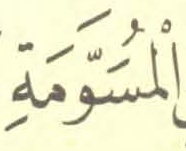 الْمُسَوَّمَةِ